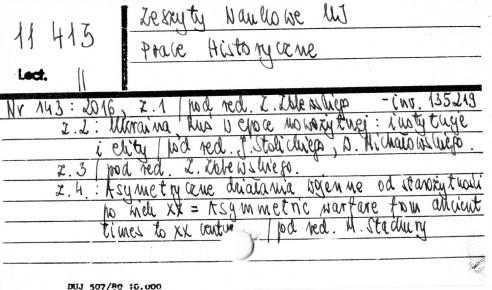 11 413
Lect. II
Zeszyty Naukowe UJ
Prace Historyczne
Nr 143 : 2016, z. 1 / pod red. Z. Zblewskiego - inw. 135219
z. 2 : Ukraina, Ruś w epoce nowożytnej : instytucje
i elity / pod red. J. Stolickiego, D. Michałowskiego.
z. 3 / pod red. Z. Zblewskiego.
z. 4. : Asymetryczne działania wojenne od starożytności
po wiek XX = Asymmetric warfare from ancient
times to XX centu / pod red. M. Stachury
DUJ 507/80 10.000